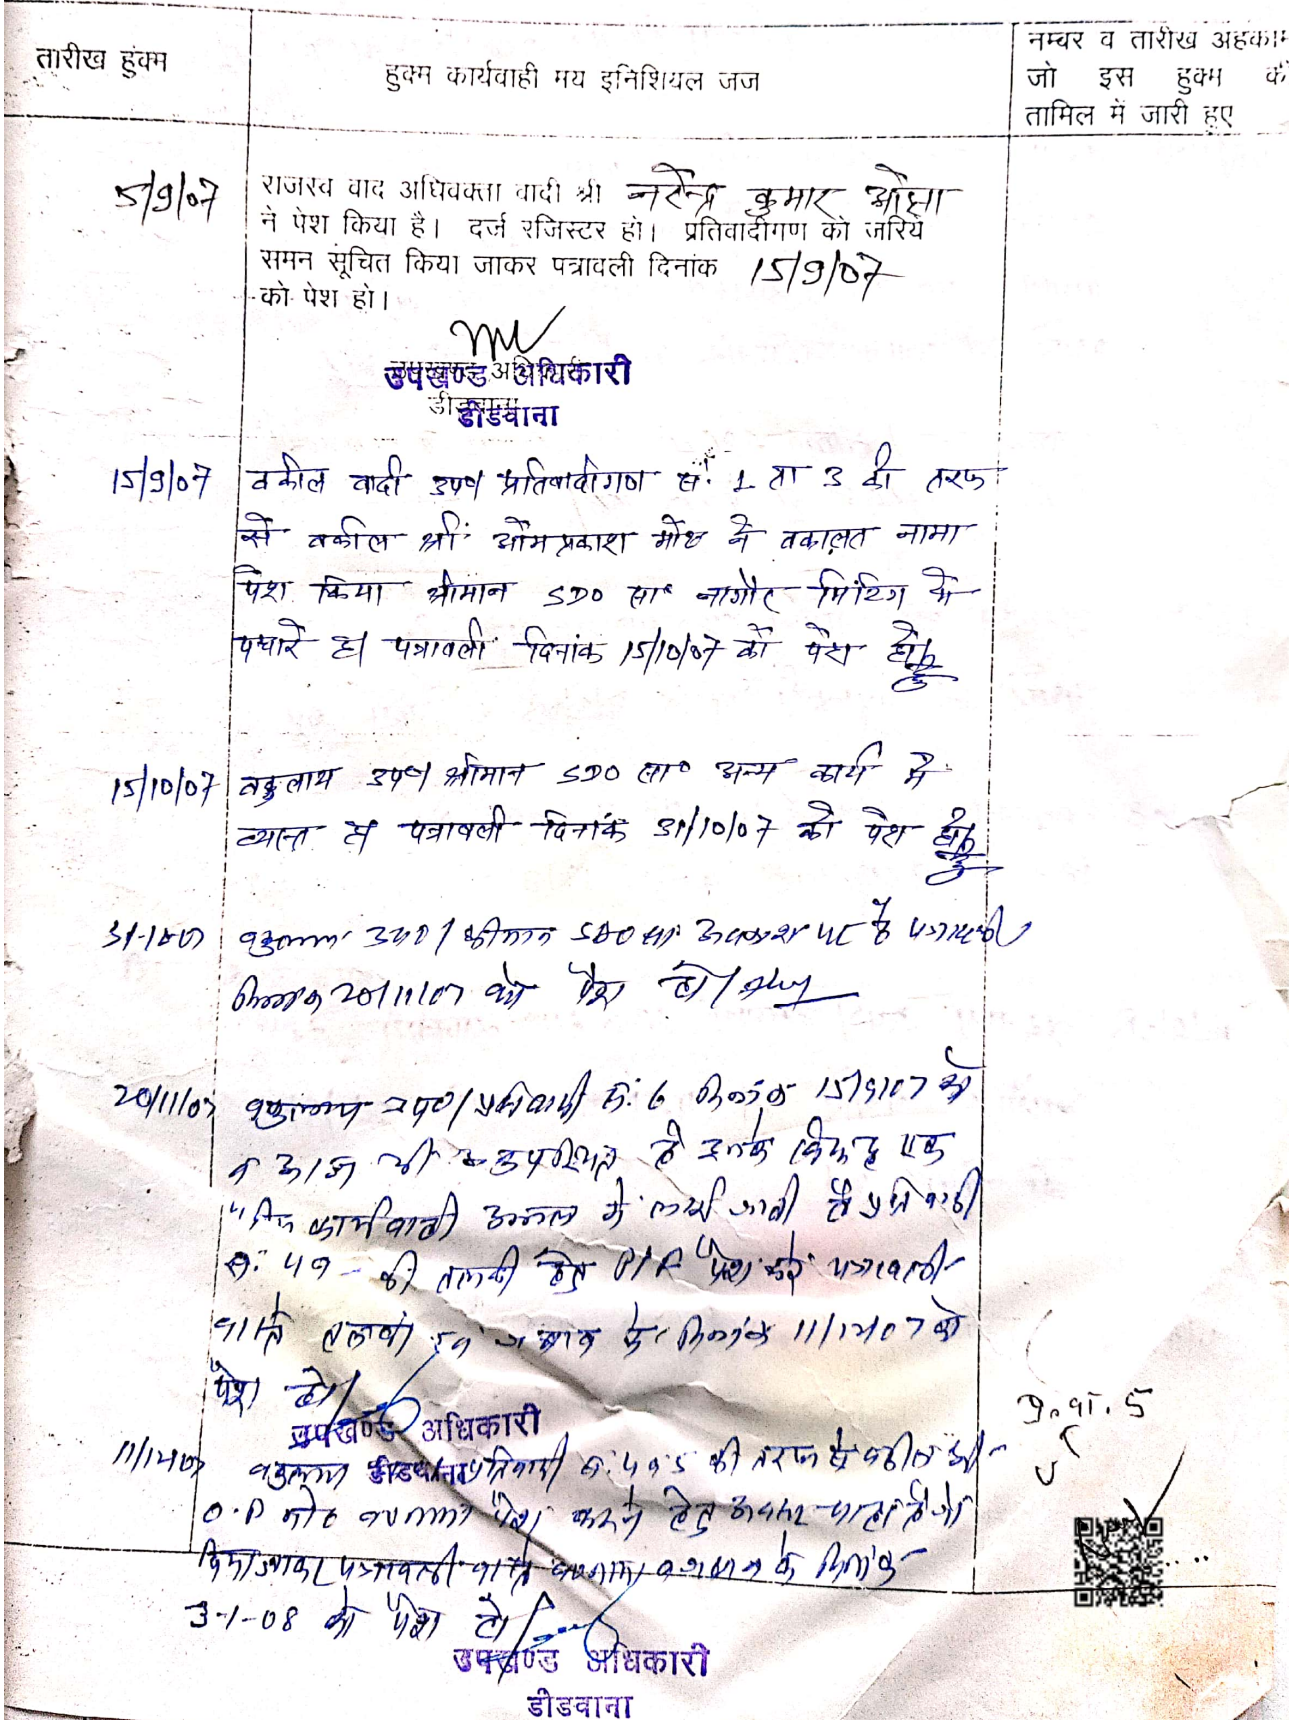 तारीख हुक्म
हुक्म कार्यवाही मय इनिशियल जज
नम्बर व तारीख अहकाम
जो इस हुक्म की
तामिल में जारी हुए
5/9/07
राजस्व वाद अधिवक्ता वादी श्री नरेन्द्र कुमार ओझा
ने पेश किया है। दर्ज रजिस्टर हो। प्रतिवादीगण को जरिये
समन सूचित किया जाकर पत्रावली दिनांक 15/9/07
को पेश हो।
उपखण्ड अधिकारी
डीडवाना
15/9/07 वकील वादी उप॰ प्रतिवादीगण सं. 1 ता 3 की तरफ
से वकील श्री ओमप्रकाश मोठ ने वकालत नामा
पेश किया श्रीमान SDO सा॰ नागौर मिटिंग मे
पधारे है। पत्रावली दिनांक 15/10/07 को पेश हो।
15/10/07 वकुलाय उप॰ श्रीमान SDO सा॰ अन्य कार्य मे
व्यस्त है पत्रावली दिनांक 31/10/07 को पेश हो।
31-10-07 वकुलाय उप॰। श्रीमान SDO सा. अवकाश पर है पत्रावली
दिनांक 20/11/07 को पेश हो।
20/11/07 वकुलाय उप॰। प्रतिवादी सं: 6 दिनांक 15/9/07 को
व आज भी अनुपस्थित है उनके विरुद्ध एक
कार्यवाही अमल मे लायी जाती है प्रतिवादी
सं: 4 की तलबी हेतु P/F पेश करे पत्रावली
वास्ते तलबी व जवाब के दिनांक 11/12/07 को
पेश हो।
उपखण्ड अधिकारी
डीडवाना
11/12/07 वकुलाय प्रतिवादी सं: 4 व 5 की तरफ से वकील श्री
O.P मोठ पेश करने हेतु अवसर चाहा है जो
दिया जाकर पत्रावली वास्ते के दिनांक
3-1-08 को पेश हो।
उपखण्ड अधिकारी
डीडवाना